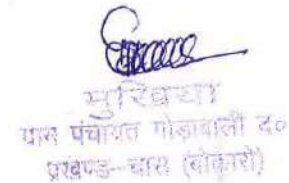 मुखिया
ग्राम पंचायत गोड़ावाली द०
प्रखण्ड-चास (बोकारो)